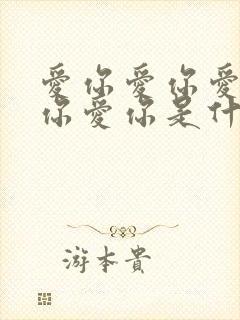 愛你愛你愛
你愛你是什
游本貴